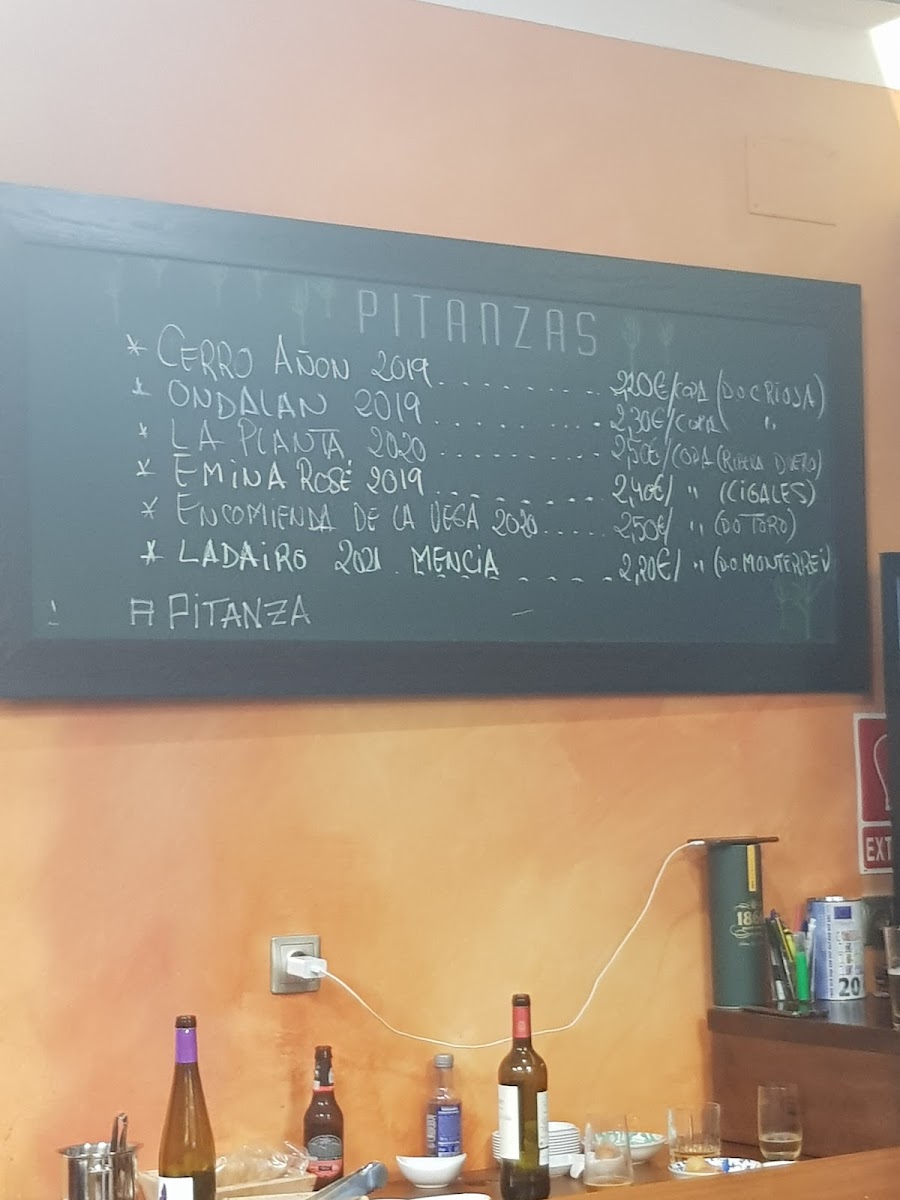 PITANZAS
* CERRO AÑON 2019 ........ 2,20€/COPA (DOC RIOJA)
* ONDALAN 2019 ........ 2,30€/COPA "
* LA PLANTA 2020 ........ 2,50€/COPA (RIBERA DUERO)
* EMINA ROSÉ 2019 ........ 2,40€/ " (CIGALES)
* ENCOMIENDA DE LA VEGA 2020 ........ 2,50€/ " (DO TORO)
* LADAIRO 2021 MENCIA ........ 2,20€/ " (D.O. MONTERREI)
A PITANZA
EXT
186
20